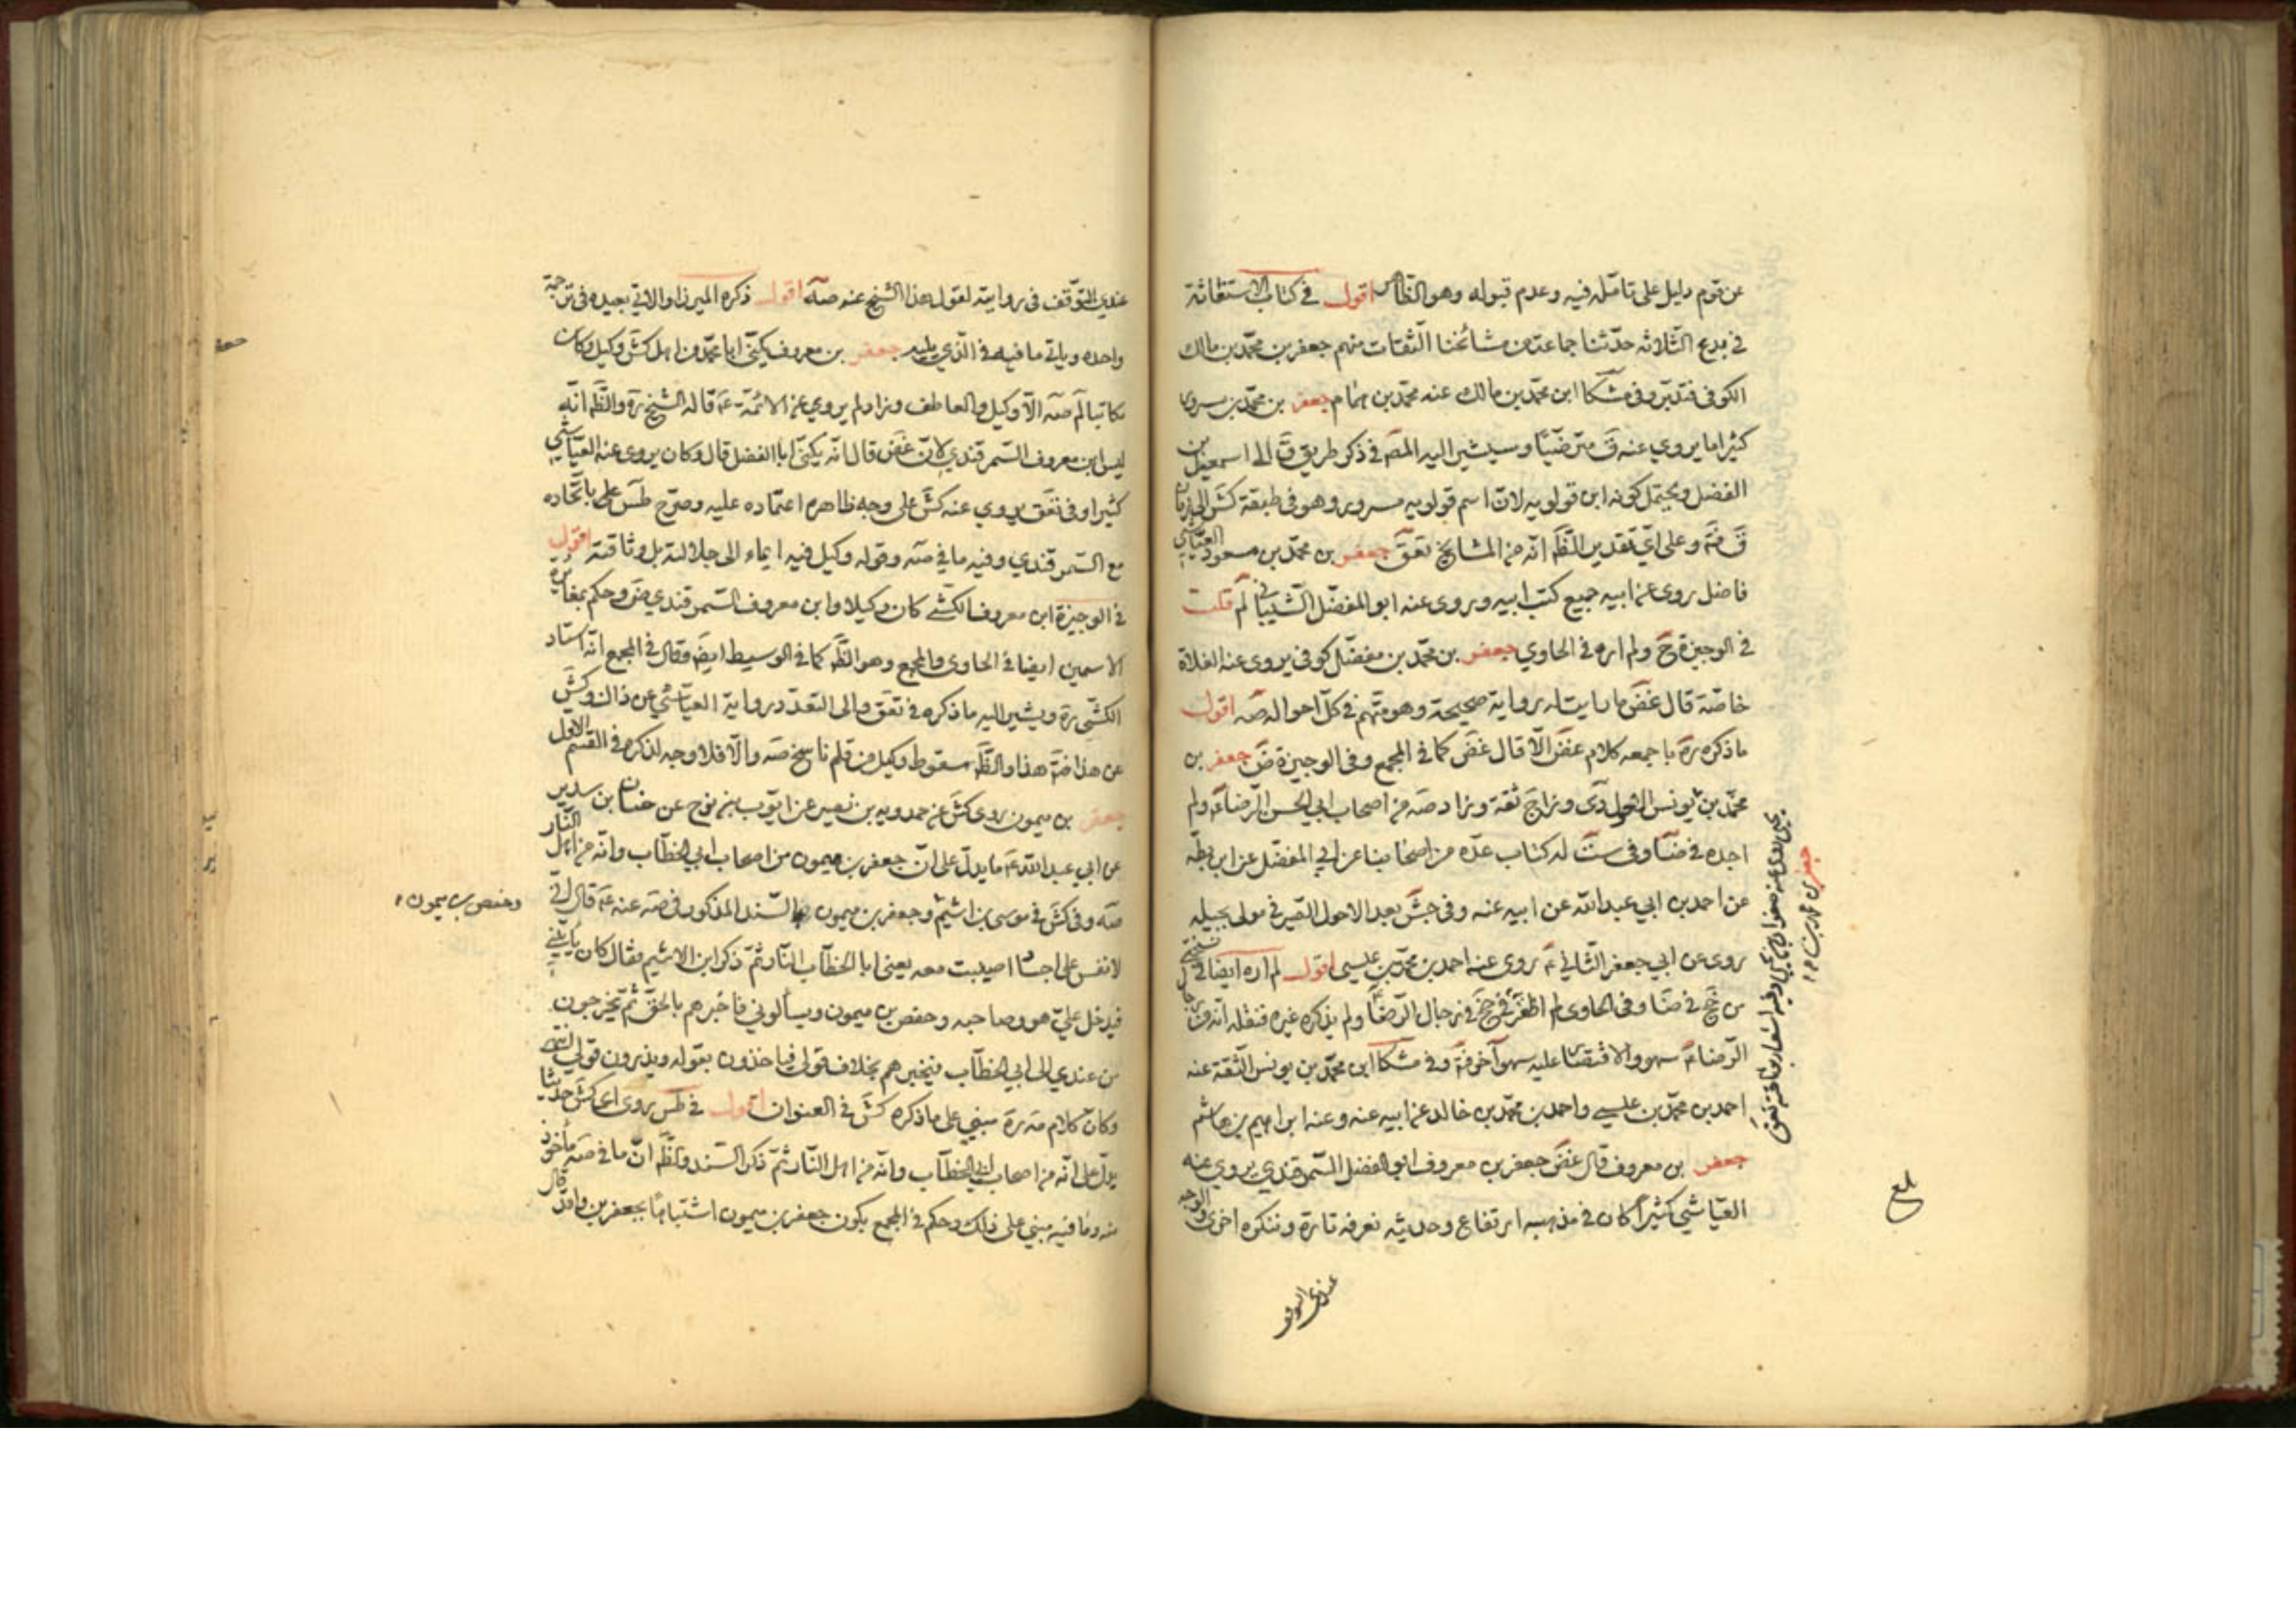 عن قوم دليل على تامّله فيه وعدم قبوله وهو الظاهر اقول في كتاب الاستغاثة
في بدع الثلاثه حدّثنا جماعة من مشائخنا الثقات منهم جعفر بن محمّد بن مالك
الكوفي فتدبّر وفي مشكا ابن محمّد بن مالك عنه محمّد بن همام جعفر بن محمّد بن مسرور
كثيرا ما يروي عنه ق مترضّيًا وسيشير اليه المص في ذكر طريق ق الى اسمعيل بن
الفضل ويحتمل كونه ابن قولويه لانّ اسم قولويه مسرور وهو في طبقة كش الى زمان
ق وعلى اي تقدير الظّ انّه من المشايخ تعق جعفر بن محمّد بن مسعود العيّاشي
فاضل روى عن ابيه جميع كتب ابيه وروى عنه ابو المفضّل الشيباني لم قلت
في الوجيزة ح ولم اره في الحاوي جعفر بن محمّد بن مفضّل كوفي يروي عنه الغلاة
خاصّة قال غض ما رايت له رواية صحيحة وهو متّهم في كلّ احواله صه اقول
ما ذكره ره باجمعه كلام غض الّا قال غض كما في المجمع وفي الوجيزة ض جعفر بن
محمّد بن يونس الاحول دي وزاد ج ثقة وزاد صه من اصحاب ابي الحسن الرضا ع ولم
اجده في ضا وفي ست له كتاب عدّه من اصحابنا عن ابي المفضّل عن ابن بطّه
عن احمد بن ابي عبد الله عن ابيه عنه وفي جش بعد الاحول الصّيرفي مولى بجيله
روى عن ابي جعفر الثاني ع روى عنه احمد بن محمّد بن عيسى اقول لم اره ايضا في نسختي
من جخ في ضا وفي الحاوي لم اظفر في جخ في رجال الرضا ولم يذكره غيره فنقله انّه من رجال
الرّضا ع سهو والاقتصار عليه سهو آخر وفي مشكا ابن محمّد بن يونس الثقة عنه
احمد بن محمّد بن عيسى واحمد بن محمّد بن خالد عن ابيه عنه وعنه ابراهيم بن هاشم
جعفر بن معروف قال غض جعفر بن معروف ابو الفضل السّمرقندي يروي عنه
العيّاشي كثيرًا كان في مذهبه ارتفاع وحديثه نعرفه تارة وننكره اخرى والوجه
عندي التوقف
جعفر بن محمد بن
يحيى روى عنه صفوان بن يحيى وفيه اشعار بوثاقته تعق
بلغ
عندي التوّقف في روايته لقول هذا الشّيخ عنه صه اقول ذكره الميرزا والاتي بعيده في ترجمة
واحده وياتي ما فيه في الّذي يليه جعفر بن معروف يكنّى ابا محمّد من اهل كش وكيل وكان
مكاتبا لم صه الّا وكيل والعاطف وزاد لم يروي عن الائمّة ع قاله الشّيخ ره والظّ انّه
ليس ابن معروف السّمرقندي لانّ غض قال انّه يكنّى ابا الفضل قال وكان يروى عنه العيّاشي
كثيرا وفي تعق يروي عنه كش على وجه ظاهره اعتماده عليه وصرّح طس على باتّحاده
مع السّمرقندي وفيه ما في صه وقوله وكيل فيه ايماء الى جلالته بل وثاقته اقول
في الوجيزة ابن معروف الكشّي كان وكيلا وابن معروف السّمرقندي ض وحكم بمغايرة
الاسمين ايضا في الحاوي والمجمع وهو الظّ كما في الوسيط ايض وقال في المجمع انّه استاد
الكشّي ره ويشير اليه ما ذكره في تعق والى التعدّد رواية العيّاشي عن ذاك وكش
عن هذا هذا والظّ سقوط وكيل من قلم ناسخ صه والّا فلا وجه لذكره في القسم الاول
جعفر بن ميمون روى كش عن حمدويه بن نصير عن ايّوب بن نوح عن حنان بن سدير
عن ابي عبد الله ع ما يدلّ على انّ جعفر بن ميمون من اصحاب ابي الخطّاب وانّه من اهل النّار
صه وفي كش في موسى بن اشيم وجعفر بن ميمون بالسّند المذكور في صه عنه ع قال انّي
لانفس على اجساد اصيبت معه يعني ابا الخطّاب النّار ثمّ ذكر ابن الاشيم فقال كان ياتيني
فيدخل عليّ هو وصاحبه وحفص بن ميمون ويسألوني فاخبرهم بالحقّ ثمّ يخرجون
من عندي الى ابي الخطّاب فيخبرهم بخلاف قولي فياخذون بقوله ويذرون قولي انتهى
وكان كلام مه ره مبني على ما ذكره كش في العنوان اقول في طس روى كش حديثا
يدلّ على انّه من اصحاب ابي الخطّاب وانّه من اهل النّار ثمّ ذكر السّند والظّ انّ ما في صه مأخوذ
منه وما فيه مبني على ذلك وحكم في المجمع بكون جعفر بن ميمون اشتباهًا بجعفر بن واقد قال
وحفص بن ميمون